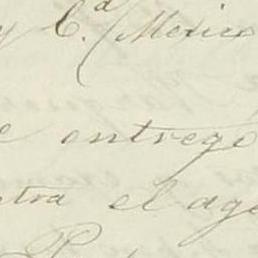 y C.ª Mexico
e entregó
ntra el age
P